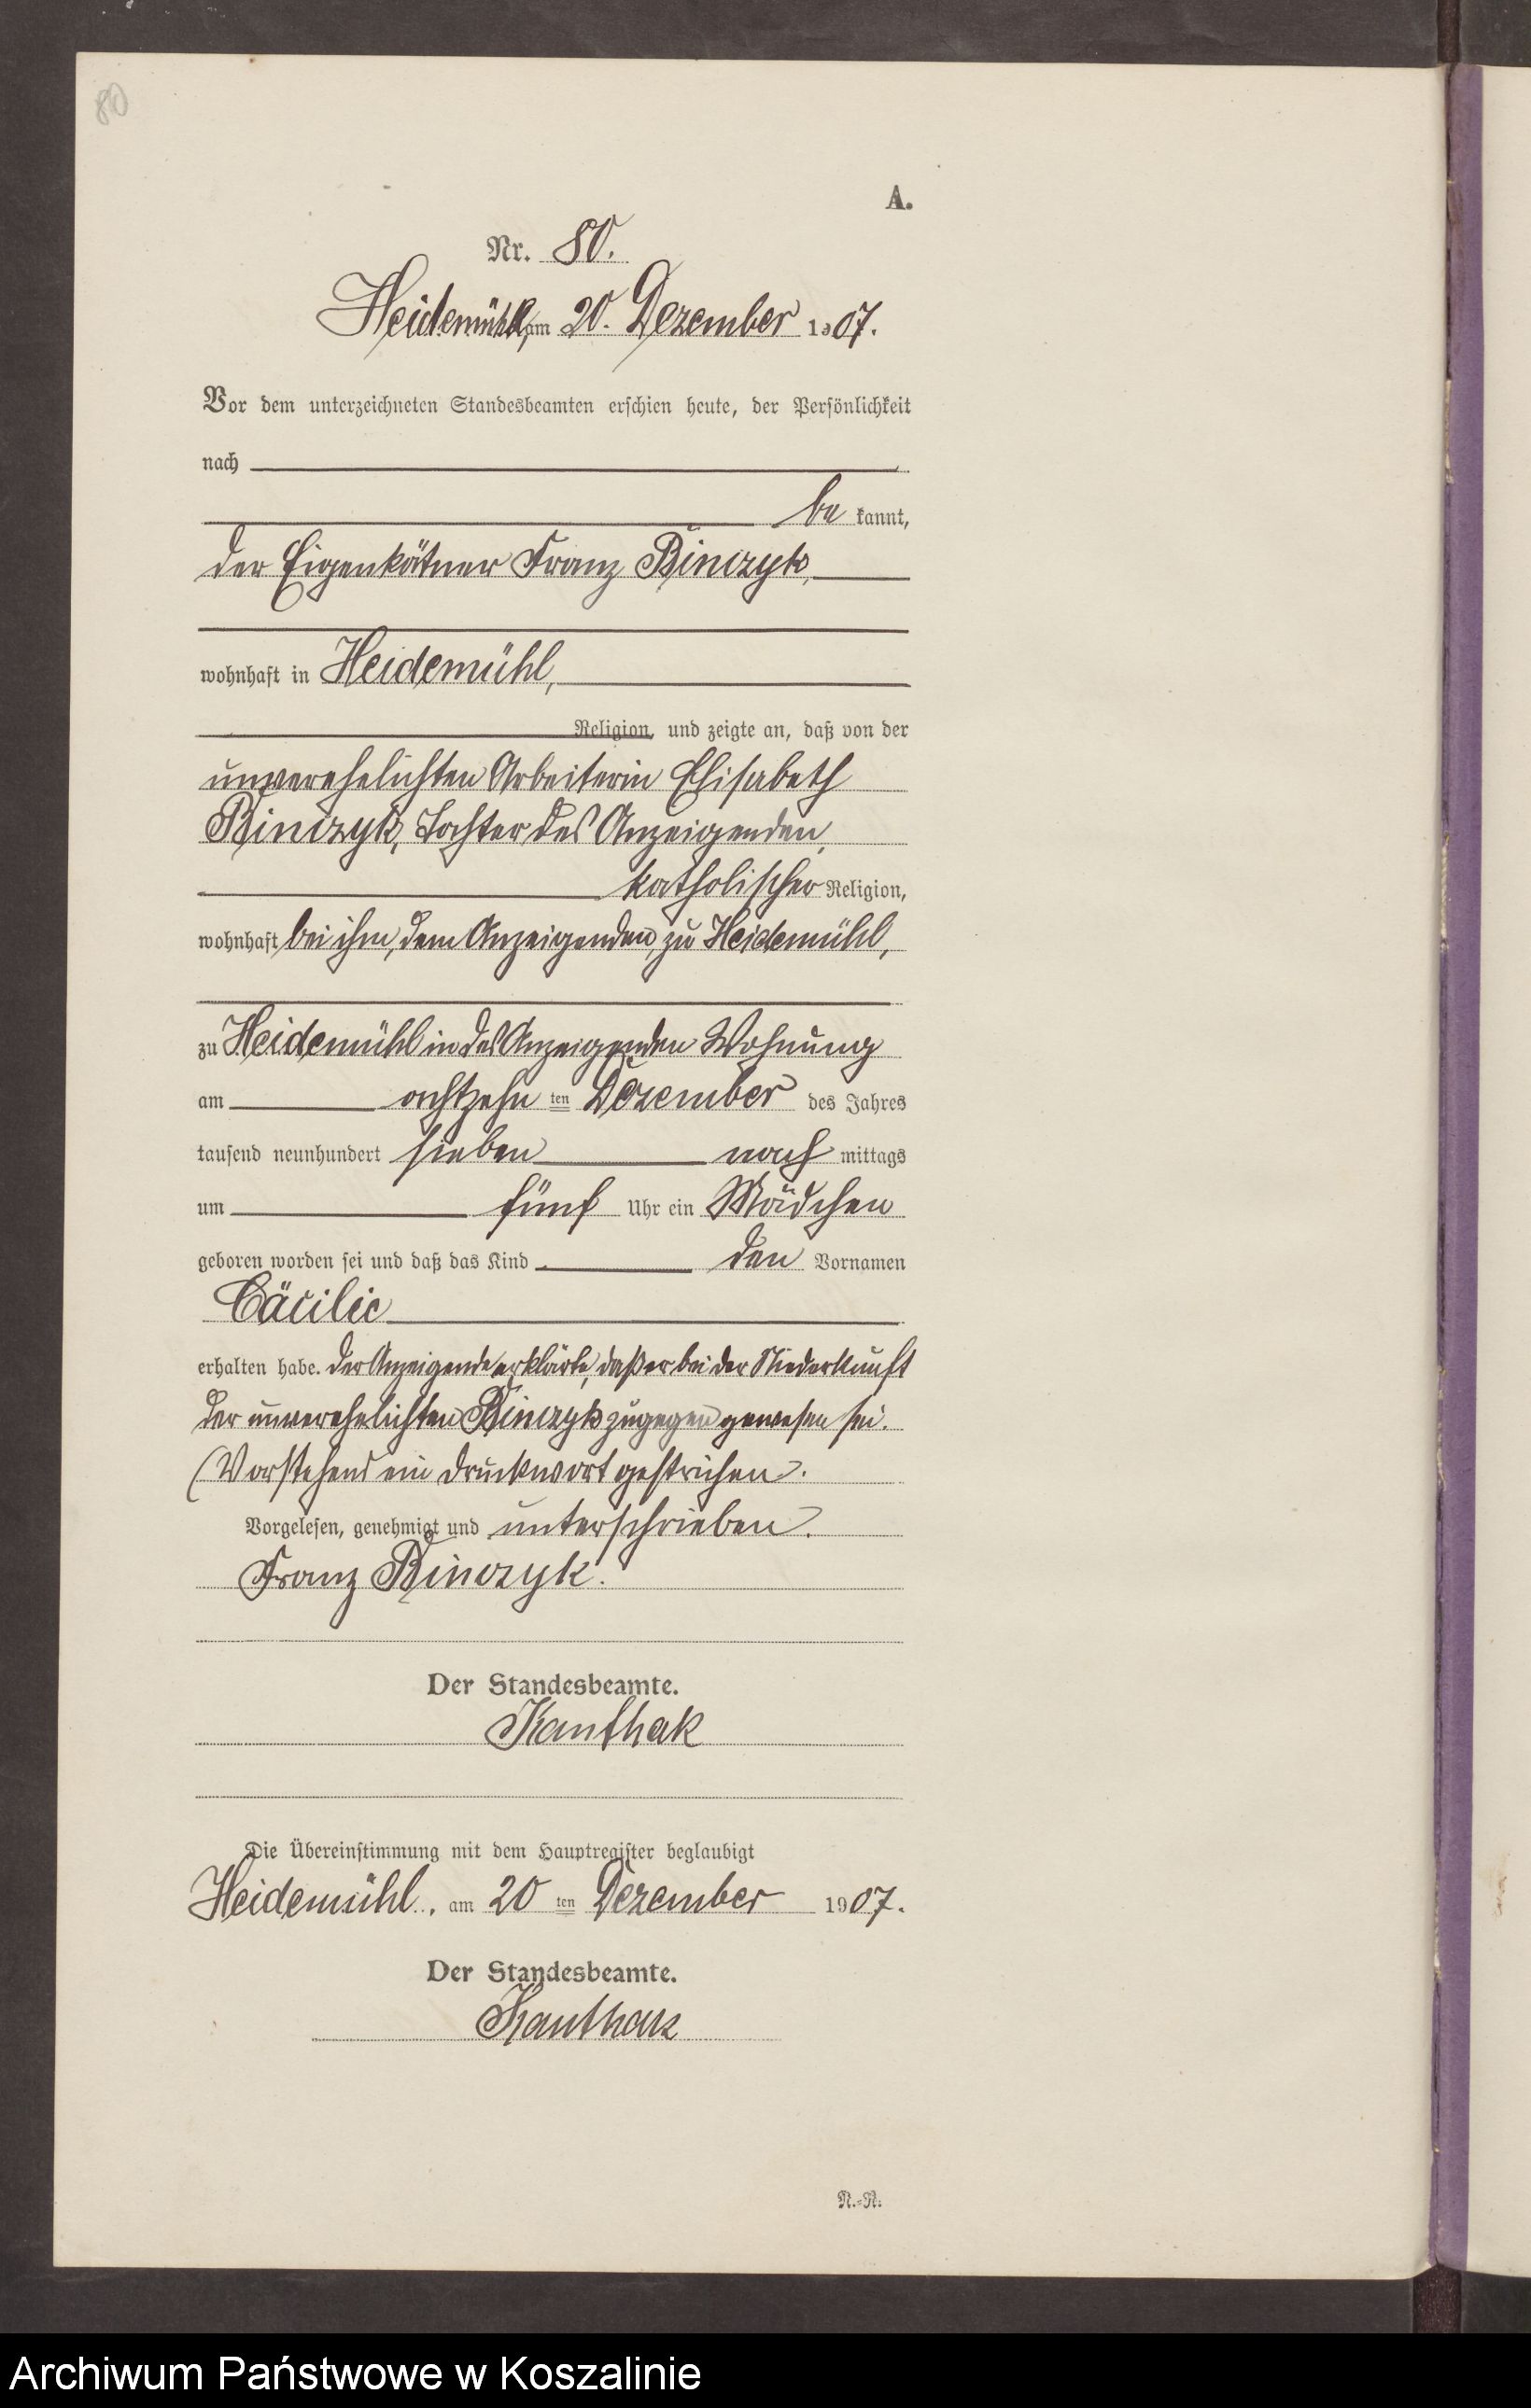 80
A.
Nr. 80.
Heidemühl, am 20. Dezember 1907.
Vor dem unterzeichneten Standesbeamten erschien heute, der Persönlichkeit
nach
be kannt,
der Eigenkätner Franz Binczyk,
wohnhaft in Heidemühl,
Religion, und zeigte an, daß von der
unverehelichten Arbeiterin Elisabeth
Binczyk, Tochter des Anzeigenden,
katholischer Religion,
wohnhaft bei ihm, dem Anzeigenden, zu Heidemühl,
zu Heidemühl in des Anzeigenden Wohnung
am achtzehn ten Dezember des Jahres
tausend neunhundert sieben nach mittags
um fünf Uhr ein Mädchen
geboren worden sei und daß das Kind den Vornamen
Cäcilie
erhalten habe. Der Anzeigende erklärte, daß er bei der Niederkunft
der unverehelichten Binczyk zugegen gewesen sei.
(Vorstehend ein Druckwort gestrichen.
Vorgelesen, genehmigt und unterschrieben.
Franz Binczyk.
Der Standesbeamte.
Kanthak
Die Übereinstimmung mit dem Hauptregister beglaubigt
Heidemühl, am 20 ten Dezember 1907.
Der Standesbeamte.
Kanthak
N.-R.
Archiwum Państwowe w Koszalinie